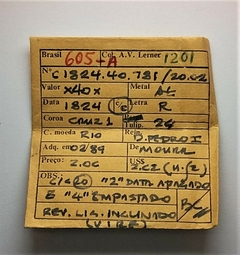 Brasil 605-A Col. A.V. Lerner 1201
Nº C1824.40.781/20.02
Valor x40x Metal
Data 1824 Letra R
Coroa CRUZ1 Tulip. 24
C. moeda RIO Rein. D.PEDRO I
Adq. em 02/89 De MOURA
Preço: 2.00 US$ 2.22
OBS.: "2" DATA APAGADO
E "4" EMPASTADO
REV. LIG. INCLINADO